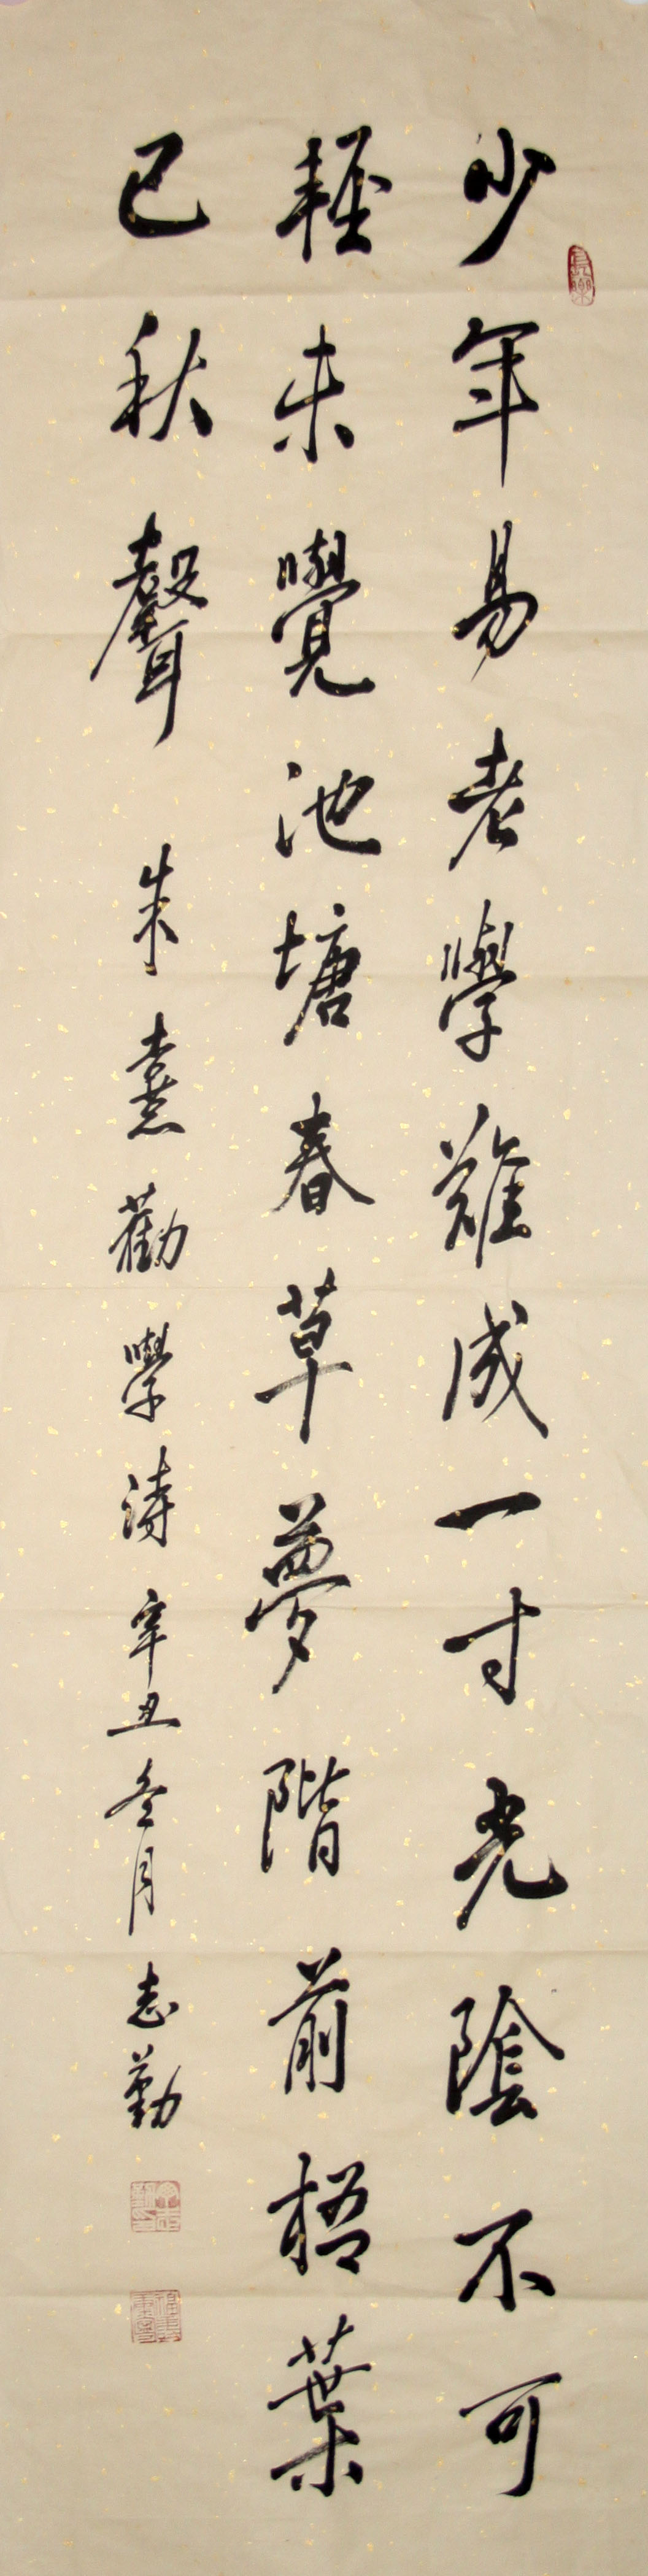 少年易老學難成一寸光陰不可
輕未覺池塘春草夢階前梧葉
已秋聲 朱熹勸學詩 辛丑冬月 志勤